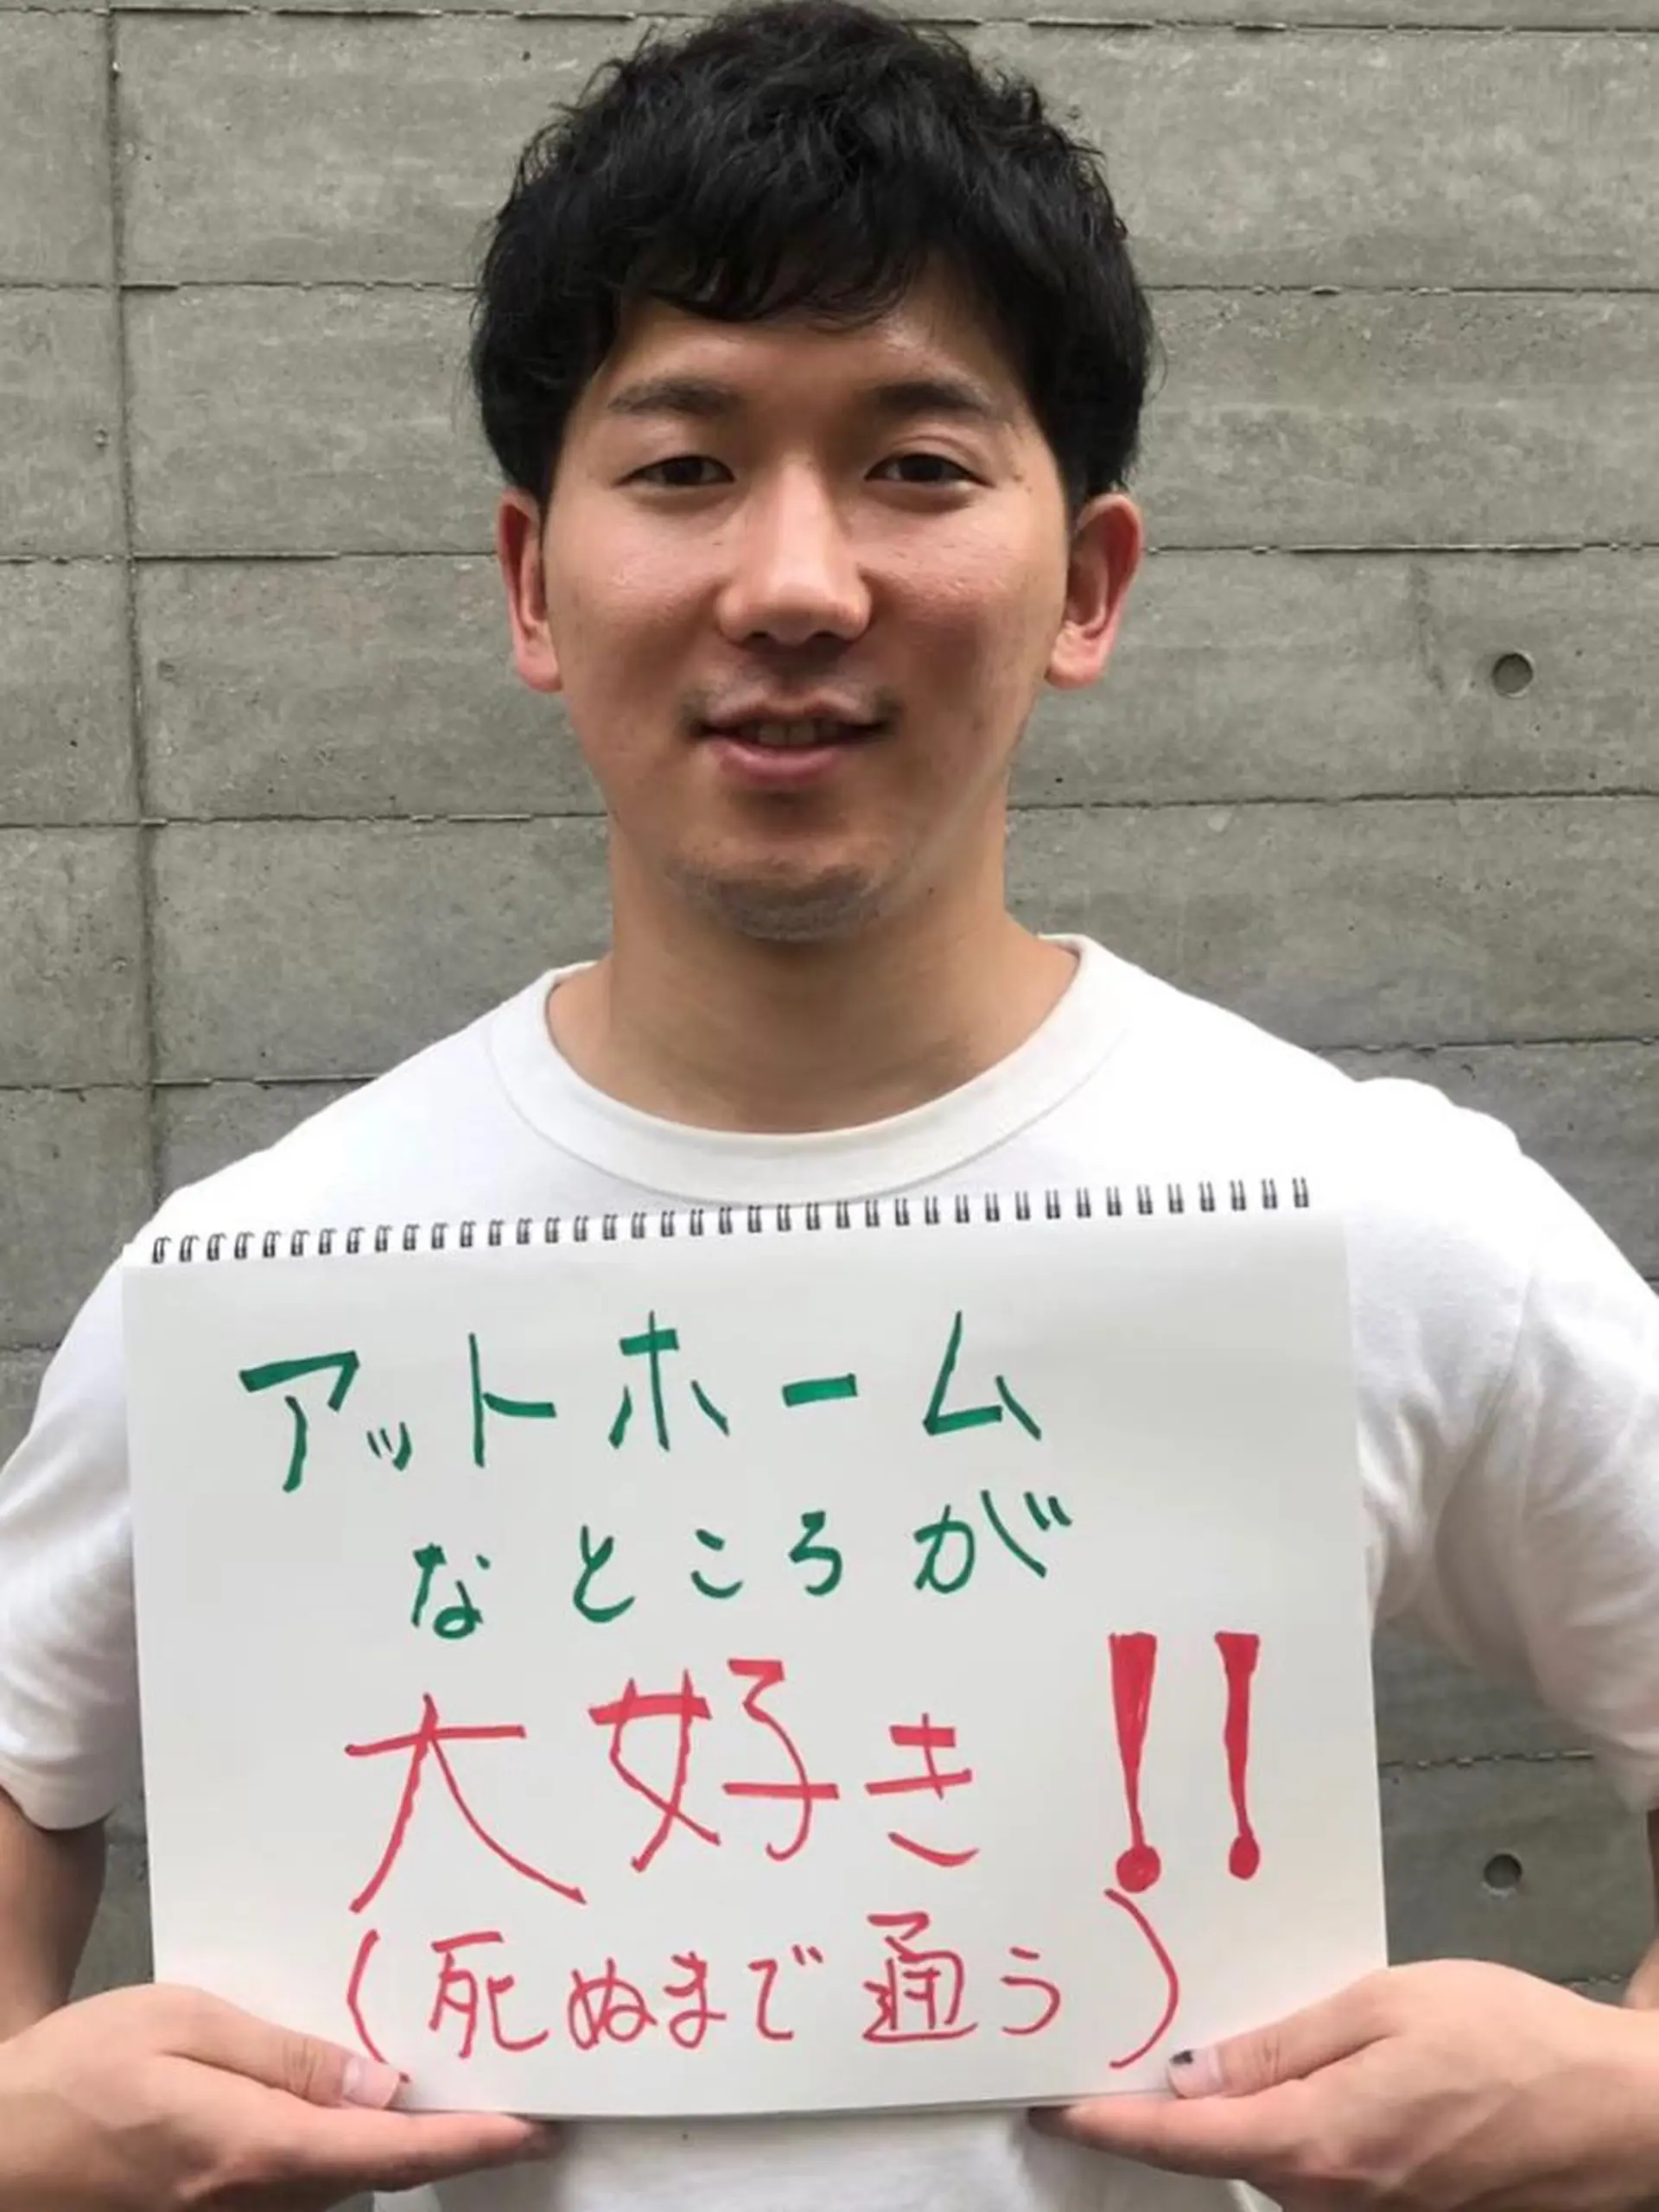 アットホーム
なところが
大好き!!
(死ぬまで通う)